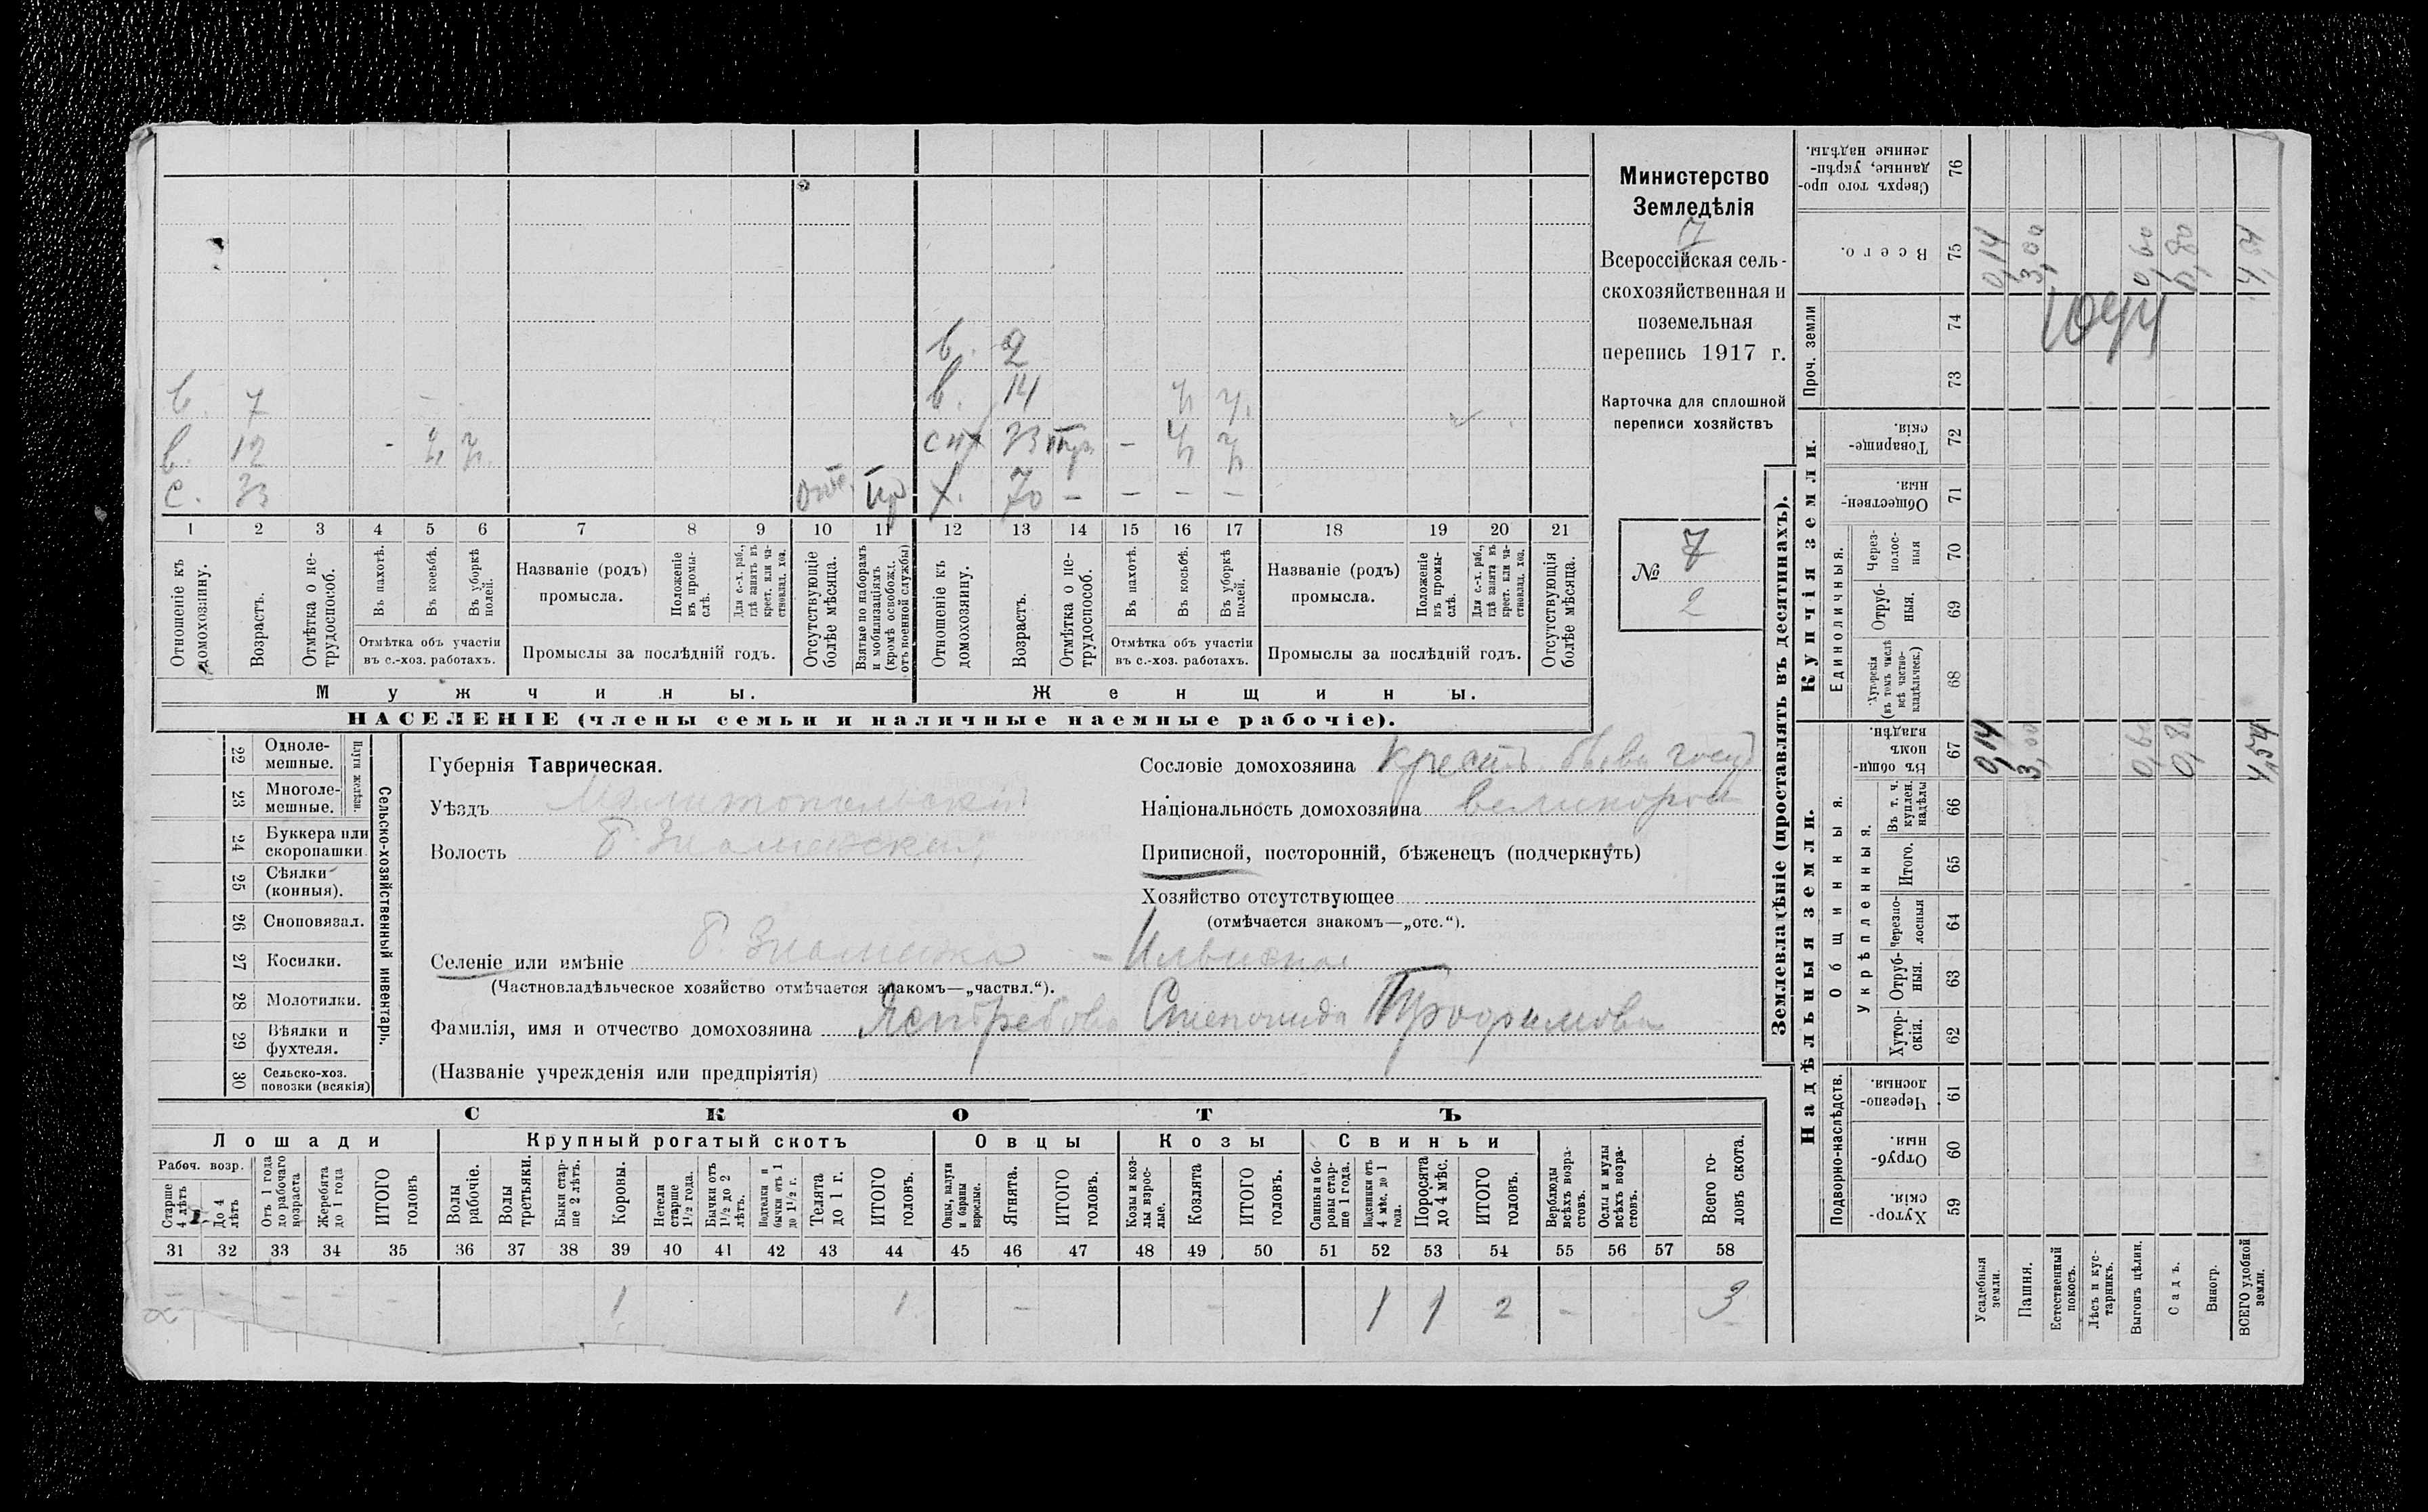 в. 2
в. 7
в. 14 ч ч.
в. 12 - ч ч.
сих 33 - ч ч
с. 33
х. 70 - - - -
1 2 3 4 5 6 7 8 9 10 11 12 13 14 15 16 17 18 19 20 21
Отношеніе къ домохозяину.
Возрастъ.
Отмѣтка о нетрудоспособ.
Въ пахотѣ.
Въ косьбѣ.
Въ уборкѣ полей.
Отмѣтка объ участіи
въ с.-хоз. работахъ.
Названіе (родъ)
промысла.
Положеніе въ промыслѣ.
Для с.-х. раб., гдѣ занятъ въ крест. или частновлад. хоз.
Промыслы за послѣдній годъ.
Отсутствующіе болѣе мѣсяца.
Взятые по наборамъ и мобилизаціямъ (кромѣ освобожд. отъ военной службы)
Отношеніе къ домохозяину.
Возрастъ.
Отмѣтка о нетрудоспособ.
Въ пахотѣ.
Въ косьбѣ.
Въ уборкѣ полей.
Отмѣтка объ участіи
въ с.-хоз. работахъ.
Названіе (родъ)
промысла.
Положеніе въ промыслѣ.
Для с.-х. раб., гдѣ занята въ крест. или частновлад. хоз.
Промыслы за послѣдній годъ.
Отсутствующія болѣе мѣсяца.
Мужчины.
Женщины.
НАСЕЛЕНІЕ (члены семьи и наличные наемные рабочіе).
Министерство
Земледѣлія
7
Всероссійская сель-
скохозяйственная и
поземельная
перепись 1917 г.
Карточка для сплошной
переписи хозяйствъ
№ 7
2
22 Одноле-
мешные.
23 Многоле-
мешные.
Плуги желѣзн.
24 Буккера или
скоропашки
25 Сѣялки
(конныя).
26 Сноповязал.
27 Косилки.
28 Молотилки.
29 Вѣялки и
фухтеля.
30 Сельско-хоз.
повозки (всякія)
Сельско-хозяйственный инвентарь.
Губернія Таврическая.
Уѣздъ Мелитопольскій
Волость Б. Знаменская
Селеніе или имѣніе Б. Знаменка -
(Частновладѣльческое хозяйство отмѣчается знакомъ—„частвл.“).
Фамилія, имя и отчество домохозяина Ястребова Степонида Трофимова
(Названіе учрежденія или предпріятія)
Сословіе домохозяина крестъ. бывш госуд
Національность домохозяина великоросс
Приписной, посторонній, бѣженецъ (подчеркнуть)
Хозяйство отсутствующее
(отмѣчается знакомъ—„отс.“).
СКОТЪ
Лошади
Рабоч. возр.
Старше 4 лѣтъ
До 4 лѣтъ
Отъ 1 года до рабочаго возраста
Жеребята до 1 года
ИТОГО головъ
Крупный рогатый скотъ
Волы рабочіе.
Волы третьяки.
Быки старше 2 лѣтъ.
Коровы.
Нетели старше 1½ года.
Бычки отъ 1½ до 2 лѣтъ.
Подтелки и бычки отъ 1 до 1½ г.
Телята до 1 г.
ИТОГО головъ.
Овцы
Овцы, валухи и бараны взрослые.
Ягнята.
ИТОГО головъ.
Козы
Козы и козлы взрослые.
Козлята
ИТОГО головъ.
Свиньи
Свиньи и боровы старше 1 года.
Подсвинки отъ 4 мѣс. до 1 года.
Поросята до 4 мѣс.
ИТОГО головъ.
Верблюды всѣхъ возрастовъ.
Ослы и мулы всѣхъ возрастовъ.
Всего головъ скота.
31 32 33 34 35 36 37 38 39 40 41 42 43 44 45 46 47 48 49 50 51 52 53 54 55 56 57 58
- - - - - 1 1 - - 1 1 2 - 3
Землевладѣніе (проставлять въ десятинахъ).
Надѣльныя земли.
Подворно-наслѣдств.
Хутор-
скія. 59
Отруб-
ныя. 60
Черезпо-
лосныя. 61
Общинныя.
Укрѣпленныя.
Хутор-
скія. 62
Отруб-
ныя. 63
Черезпо-
лосныя 64
Итого. 65
Въ т. ч. куплен. надѣлы 66
Въ общин-
номъ
владѣн. 67
Купчія земли.
Единоличныя.
Хуторскія (въ томъ числѣ всѣ частно-владѣльческ.) 68
Отруб-
ныя. 69
Через-
полос-
ныя 70
Обществен-
ныя. 71
Товарище-
скія. 72
Проч. земли
73
74
Всего. 75
Сверхъ того про-
данные, укрѣп-
ленные надѣлы. 76
Усадебныя земли.
Пашня.
Естественный покосъ.
Лѣсъ и кустарникъ.
Выгонъ цѣлин.
Садъ.
Виногр.
ВСЕГО удобной земли.
0,14 3,00 0,60 0,80 4,54
0,14 3,00 0,60 0,80 4,54